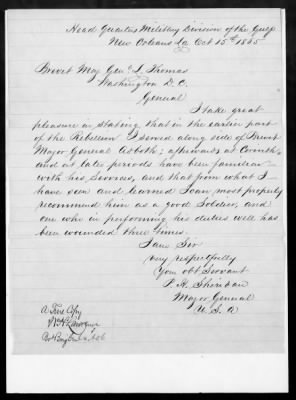 Head Quarters Military Division of the Gulf
New Orleans La Oct 15th 1865
Brevet Maj Genl L. Thomas
Washington D. C.
General
I take great
pleasure in stating that in the earlier part
of the Rebellion I served along side of Brevet
Major General Asboth; afterwards at Corinth,
and at later periods have been familiar
with his Services, and that from what I
have seen and learned I can most properly
recommend him as a good Soldier, and
one who in performing his duties well has
been wounded three times.
I am Sir
very respectfully
Your obt Servant
P. H. Sheridan
Major General
U. S. A
A True Copy